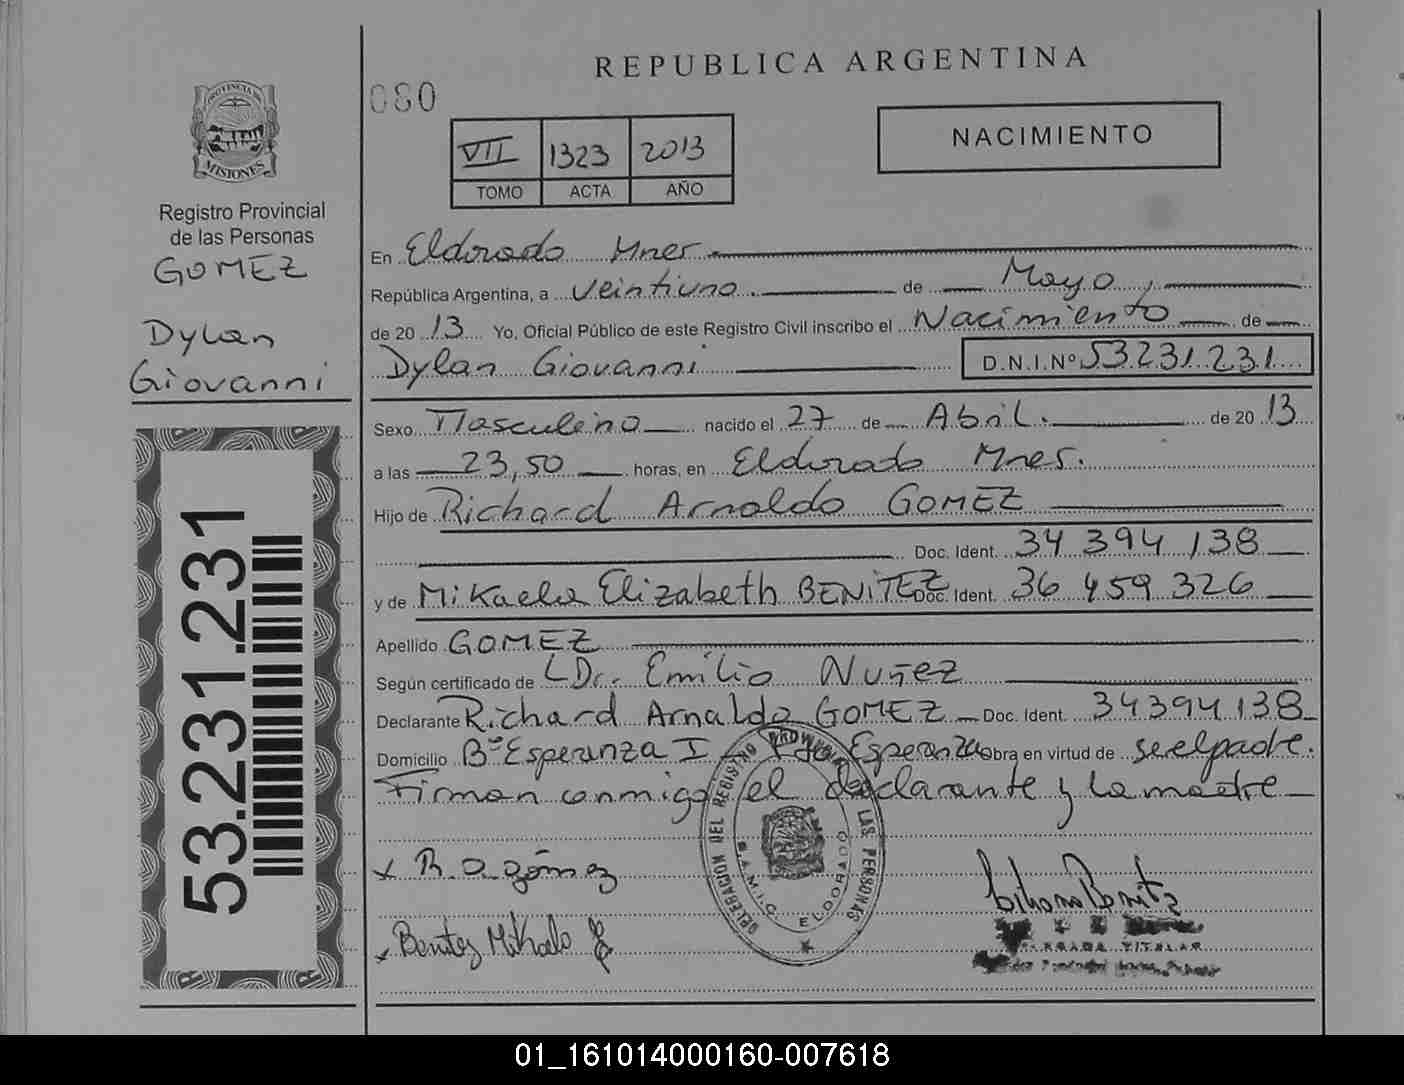 REPUBLICA ARGENTINA
080
PROVINCIA DE
MISIONES
Registro Provincial
de las Personas
GOMEZ
Dylan
Giovanni
53.231.231
VII 1323 2013
TOMO ACTA AÑO
NACIMIENTO
En Eldorado Mnes
República Argentina, a veintiuno de Mayo
de 2013 Yo, Oficial Público de este Registro Civil inscribo el Nacimiento de
Dylan Giovanni D.N.I.Nº 53231231
Sexo Masculino nacido el 27 de Abril. de 2013
a las 23,50 horas, en Eldorado Mnes.
Hijo de Richard Arnaldo GOMEZ
Doc. Ident. 34 394 138
y de Mikaela Elizabeth BENITEZ Doc. Ident. 36 459 326
Apellido GOMEZ
Según certificado de Dr. Emilio Nuñez
Declarante Richard Arnaldo GOMEZ Doc. Ident. 34394138
Domicilio Bº Esperanza I Pto Esperanza Obra en virtud de ser el padre.
Firman conmigo el declarante y la madre
x R. A. gómez
x Benitez Mikaela E
DELEGACION DEL REGISTRO PROVINCIAL LAS PERSONAS
S.A.M.I.C. ELDORADO
Benitez
TITULAR
01_161014000160-007618